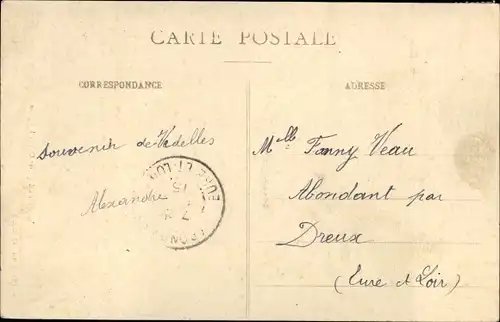 CARTE POSTALE
CORRESPONDANCE
ADRESSE
Souvenir de Vadelles
Alexandre
Melle Fanny Veau
Abondant par
Dreux
(Eure et Loir)
EURE-ET-LOIR
15